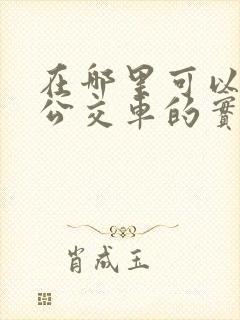 在哪里可以
公交车的實
肖成玉